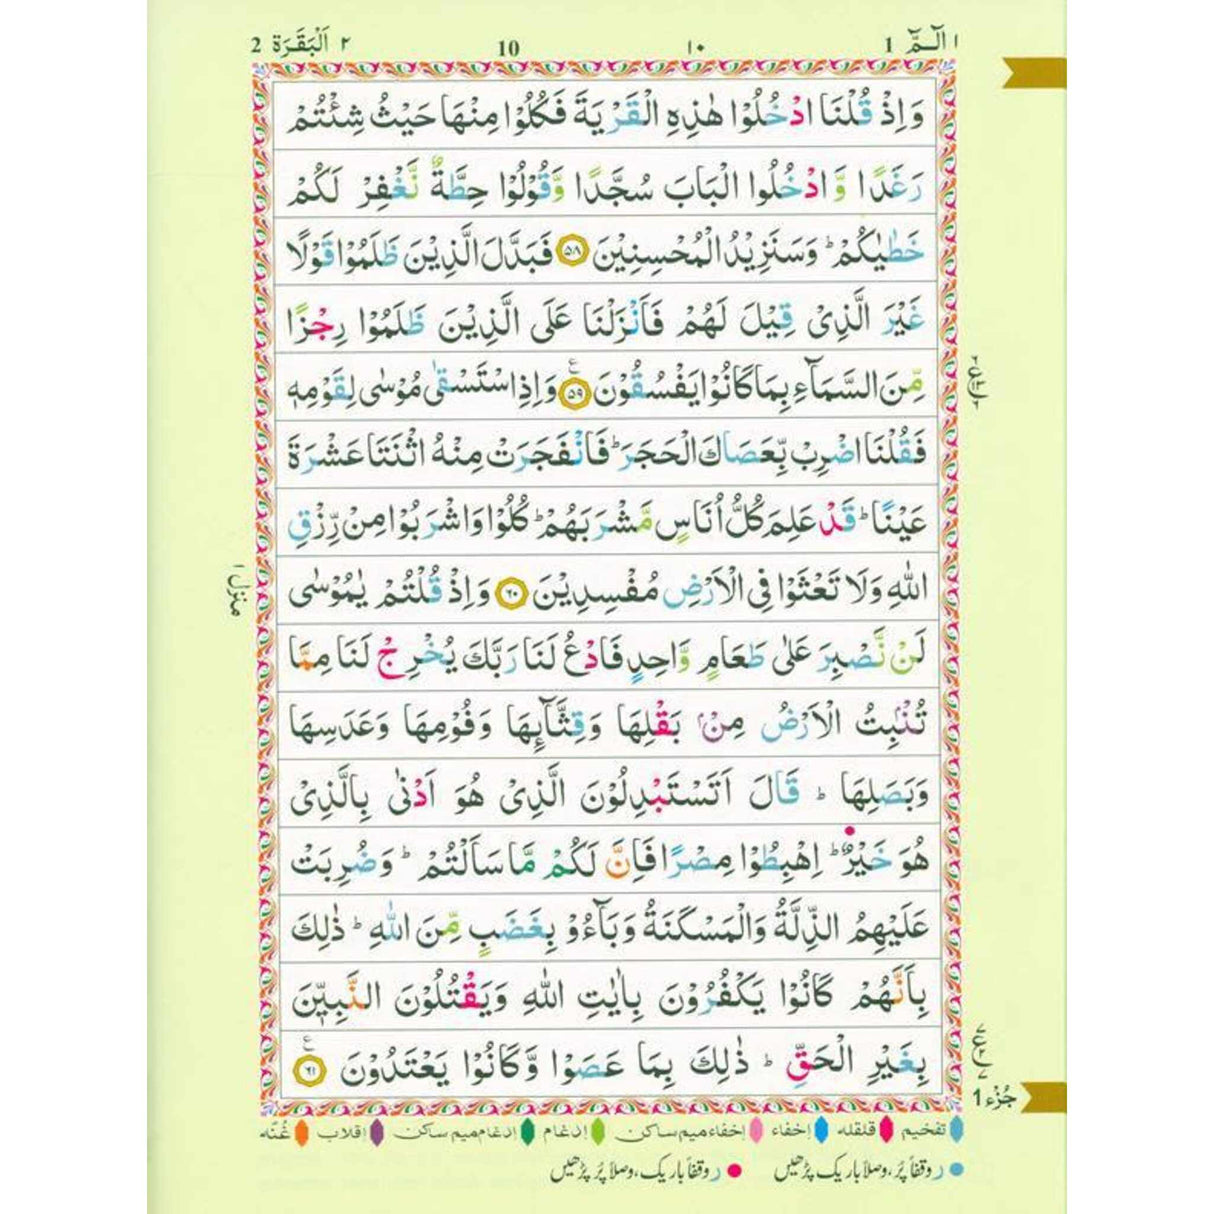 ١ الٓـمّٓ 1
١٠
10
٢ اَلْبَقَرَة 2
وَاِذْ قُلْنَا ادْخُلُوْا هٰذِهِ الْقَرْيَةَ فَكُلُوْا مِنْهَا حَيْثُ شِئْتُمْ
رَغَدًا وَّادْخُلُوا الْبَابَ سُجَّدًا وَّقُوْلُوْا حِطَّةٌ نَّغْفِرْ لَكُمْ
خَطٰيٰكُمْ ؕ وَسَنَزِيْدُ الْمُحْسِنِيْنَ ۝۵۸ فَبَدَّلَ الَّذِيْنَ ظَلَمُوْا قَوْلًا
غَيْرَ الَّذِىْ قِيْلَ لَهُمْ فَاَنْزَلْنَا عَلَى الَّذِيْنَ ظَلَمُوْا رِجْزًا
مِّنَ السَّمَآءِ بِمَا كَانُوْا يَفْسُقُوْنَ ۝۵۹ ع وَاِذِ اسْتَسْقٰى مُوْسٰى لِقَوْمِهٖ
فَقُلْنَا اضْرِبْ بِّعَصَاكَ الْحَجَرَ ؕ فَانْفَجَرَتْ مِنْهُ اثْنَتَا عَشْرَةَ
عَيْنًا ؕ قَدْ عَلِمَ كُلُّ اُنَاسٍ مَّشْرَبَهُمْ ؕ كُلُوْا وَاشْرَبُوْا مِنْ رِّزْقِ
اللّٰهِ وَلَا تَعْثَوْا فِى الْاَرْضِ مُفْسِدِيْنَ ۝۶۰ وَاِذْ قُلْتُمْ يٰمُوْسٰى
لَنْ نَّصْبِرَ عَلٰى طَعَامٍ وَّاحِدٍ فَادْعُ لَنَا رَبَّكَ يُخْرِجْ لَنَا مِمَّا
تُنْۢبِتُ الْاَرْضُ مِنْۢ بَقْلِهَا وَقِثَّآئِهَا وَفُوْمِهَا وَعَدَسِهَا
وَبَصَلِهَا ؕ قَالَ اَتَسْتَبْدِلُوْنَ الَّذِىْ هُوَ اَدْنٰى بِالَّذِىْ
هُوَ خَيْرٌ ؕ اِهْبِطُوْا مِصْرًا فَاِنَّ لَكُمْ مَّا سَاَلْتُمْ ؕ وَضُرِبَتْ
عَلَيْهِمُ الذِّلَّةُ وَالْمَسْكَنَةُ وَبَآءُوْ بِغَضَبٍ مِّنَ اللّٰهِ ؕ ذٰلِكَ
بِاَنَّهُمْ كَانُوْا يَكْفُرُوْنَ بِاٰيٰتِ اللّٰهِ وَيَقْتُلُوْنَ النَّبِيّٖنَ
بِغَيْرِ الْحَقِّ ؕ ذٰلِكَ بِمَا عَصَوْا وَّكَانُوْا يَعْتَدُوْنَ ۝۶۱ ع
منزل ١
جُزْء 1
تفخیم قلقله إخفاء إخفاء میم ساکن إدغام إدغام میم ساکن إقلاب غُنّه
ر وقفاً پُر، وصلاً باریک پڑھیں
ر وقفاً باریک، وصلاً پُر پڑھیں